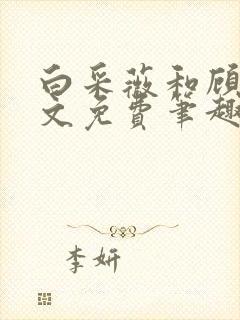 白采薇和顾
文免费笔趣
李妍